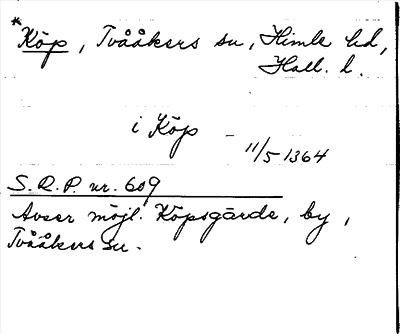 *Köp, Tvååkers sn, Himle hd,
Hall. l.
i Köp – 11/5 1364
S.R.P. nr. 609
Avser möjl. Köpsgärde, by,
Tvååkers sn.